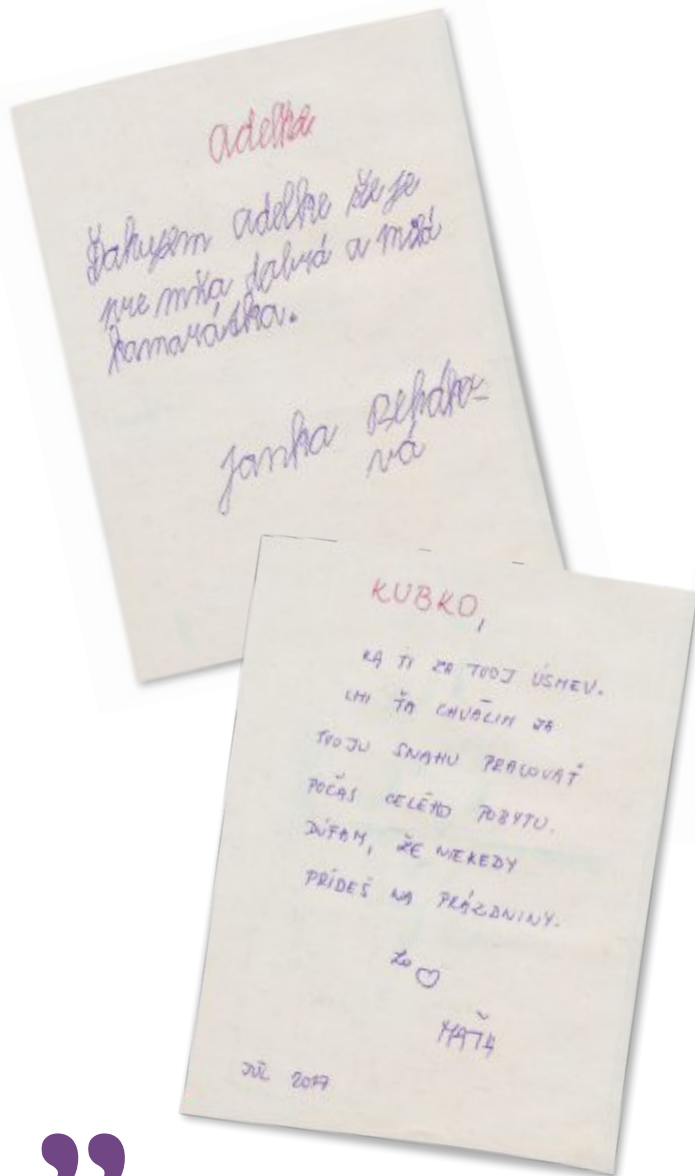 Adelka
Ďakujem Adelke že je
pre mňa dobrá a milá
kamarátka.
Janka
vá
KUBKO,
TI ZA TVOJ ÚSMEV.
ŤA CHVÁLIM ZA
TVOJU SNAHU PRACOVAŤ
POČAS CELÉHO POBYTU.
DÚFAM, ŽE NIEKEDY
PRÍDEŠ NA PRÁZDNINY.
MAŤA
JÚL 2017
”